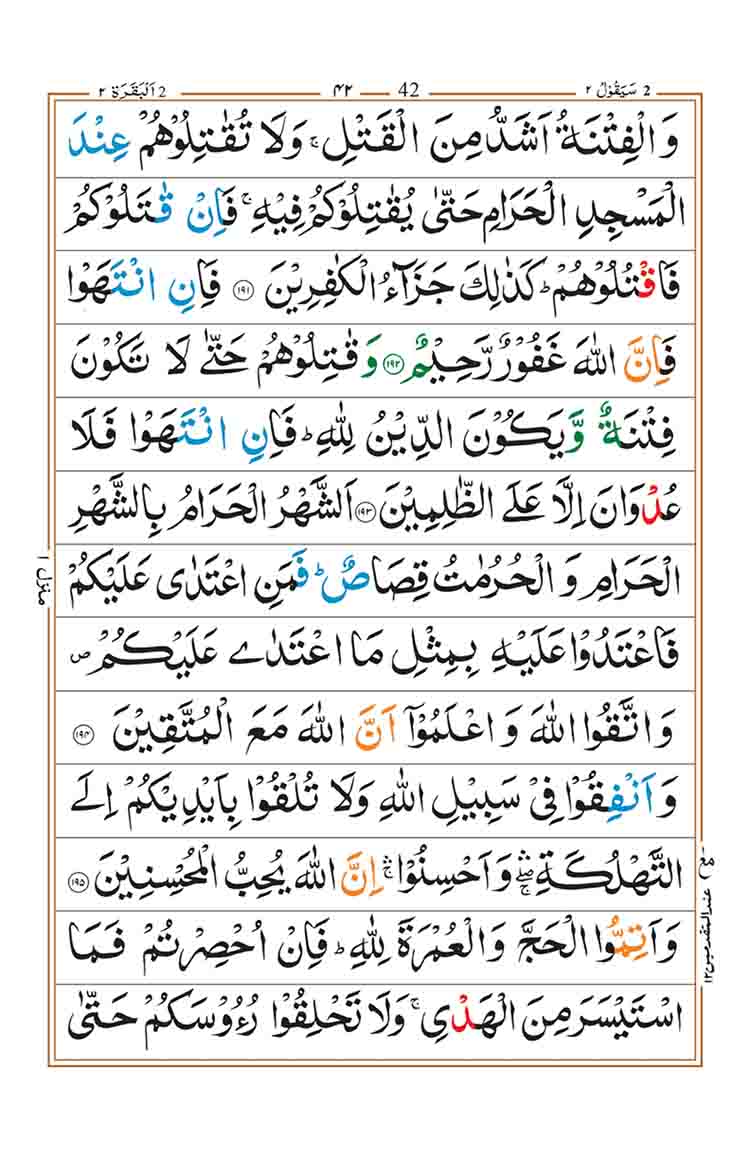 2 اَلْبَقَرَة ٢ ۴۲ 42 سَيَقُوْلُ ٢ 2
وَالْفِتْنَةُ اَشَدُّ مِنَ الْقَتْلِ ۚ وَلَا تُقٰتِلُوْهُمْ عِنْدَ
الْمَسْجِدِ الْحَرَامِ حَتّٰى يُقٰتِلُوْكُمْ فِيْهِ ۚ فَاِنْ قٰتَلُوْكُمْ
فَاقْتُلُوْهُمْ ؕ كَذٰلِكَ جَزَآءُ الْكٰفِرِيْنَ ۝۱۹۱ فَاِنِ انْتَهَوْا
فَاِنَّ اللّٰهَ غَفُوْرٌ رَّحِيْمٌ ۝۱۹۲ وَقٰتِلُوْهُمْ حَتّٰى لَا تَكُوْنَ
فِتْنَةٌ وَّيَكُوْنَ الدِّيْنُ لِلّٰهِ ؕ فَاِنِ انْتَهَوْا فَلَا
عُدْوَانَ اِلَّا عَلَى الظّٰلِمِيْنَ ۝۱۹۳ اَلشَّهْرُ الْحَرَامُ بِالشَّهْرِ
الْحَرَامِ وَالْحُرُمٰتُ قِصَاصٌ ؕ فَمَنِ اعْتَدٰى عَلَيْكُمْ
فَاعْتَدُوْا عَلَيْهِ بِمِثْلِ مَا اعْتَدٰى عَلَيْكُمْ ۪
وَاتَّقُوا اللّٰهَ وَاعْلَمُوْۤا اَنَّ اللّٰهَ مَعَ الْمُتَّقِيْنَ ۝۱۹۴
وَاَنْفِقُوْا فِيْ سَبِيْلِ اللّٰهِ وَلَا تُلْقُوْا بِاَيْدِيْكُمْ اِلَى
التَّهْلُكَةِ ۛۖۚ وَاَحْسِنُوْا ۛۚ اِنَّ اللّٰهَ يُحِبُّ الْمُحْسِنِيْنَ ۝۱۹۵
وَاَتِمُّوا الْحَجَّ وَالْعُمْرَةَ لِلّٰهِ ؕ فَاِنْ اُحْصِرْتُمْ فَمَا
اسْتَيْسَرَ مِنَ الْهَدْيِ ۚ وَلَا تَحْلِقُوْا رُءُوْسَكُمْ حَتّٰى
منزل ۱
مع عند المتقدمین ۱۲